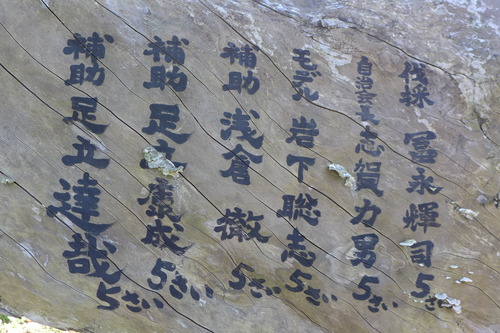 伐採 冨永輝司 5さい
自治会長 志賀力男 5さい
モデル 岩下聡志 5さい
補助 浅倉 徹 5さい
補助 足立康成 5さい
補助 足立達哉 5さい